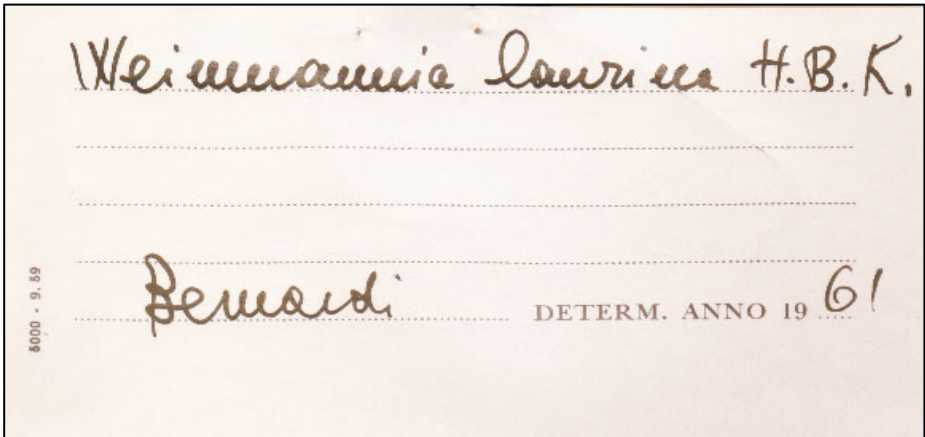 Weinmannia laurina H.B.K.
Bernardi DETERM. ANNO 1961
5000 - 9.59